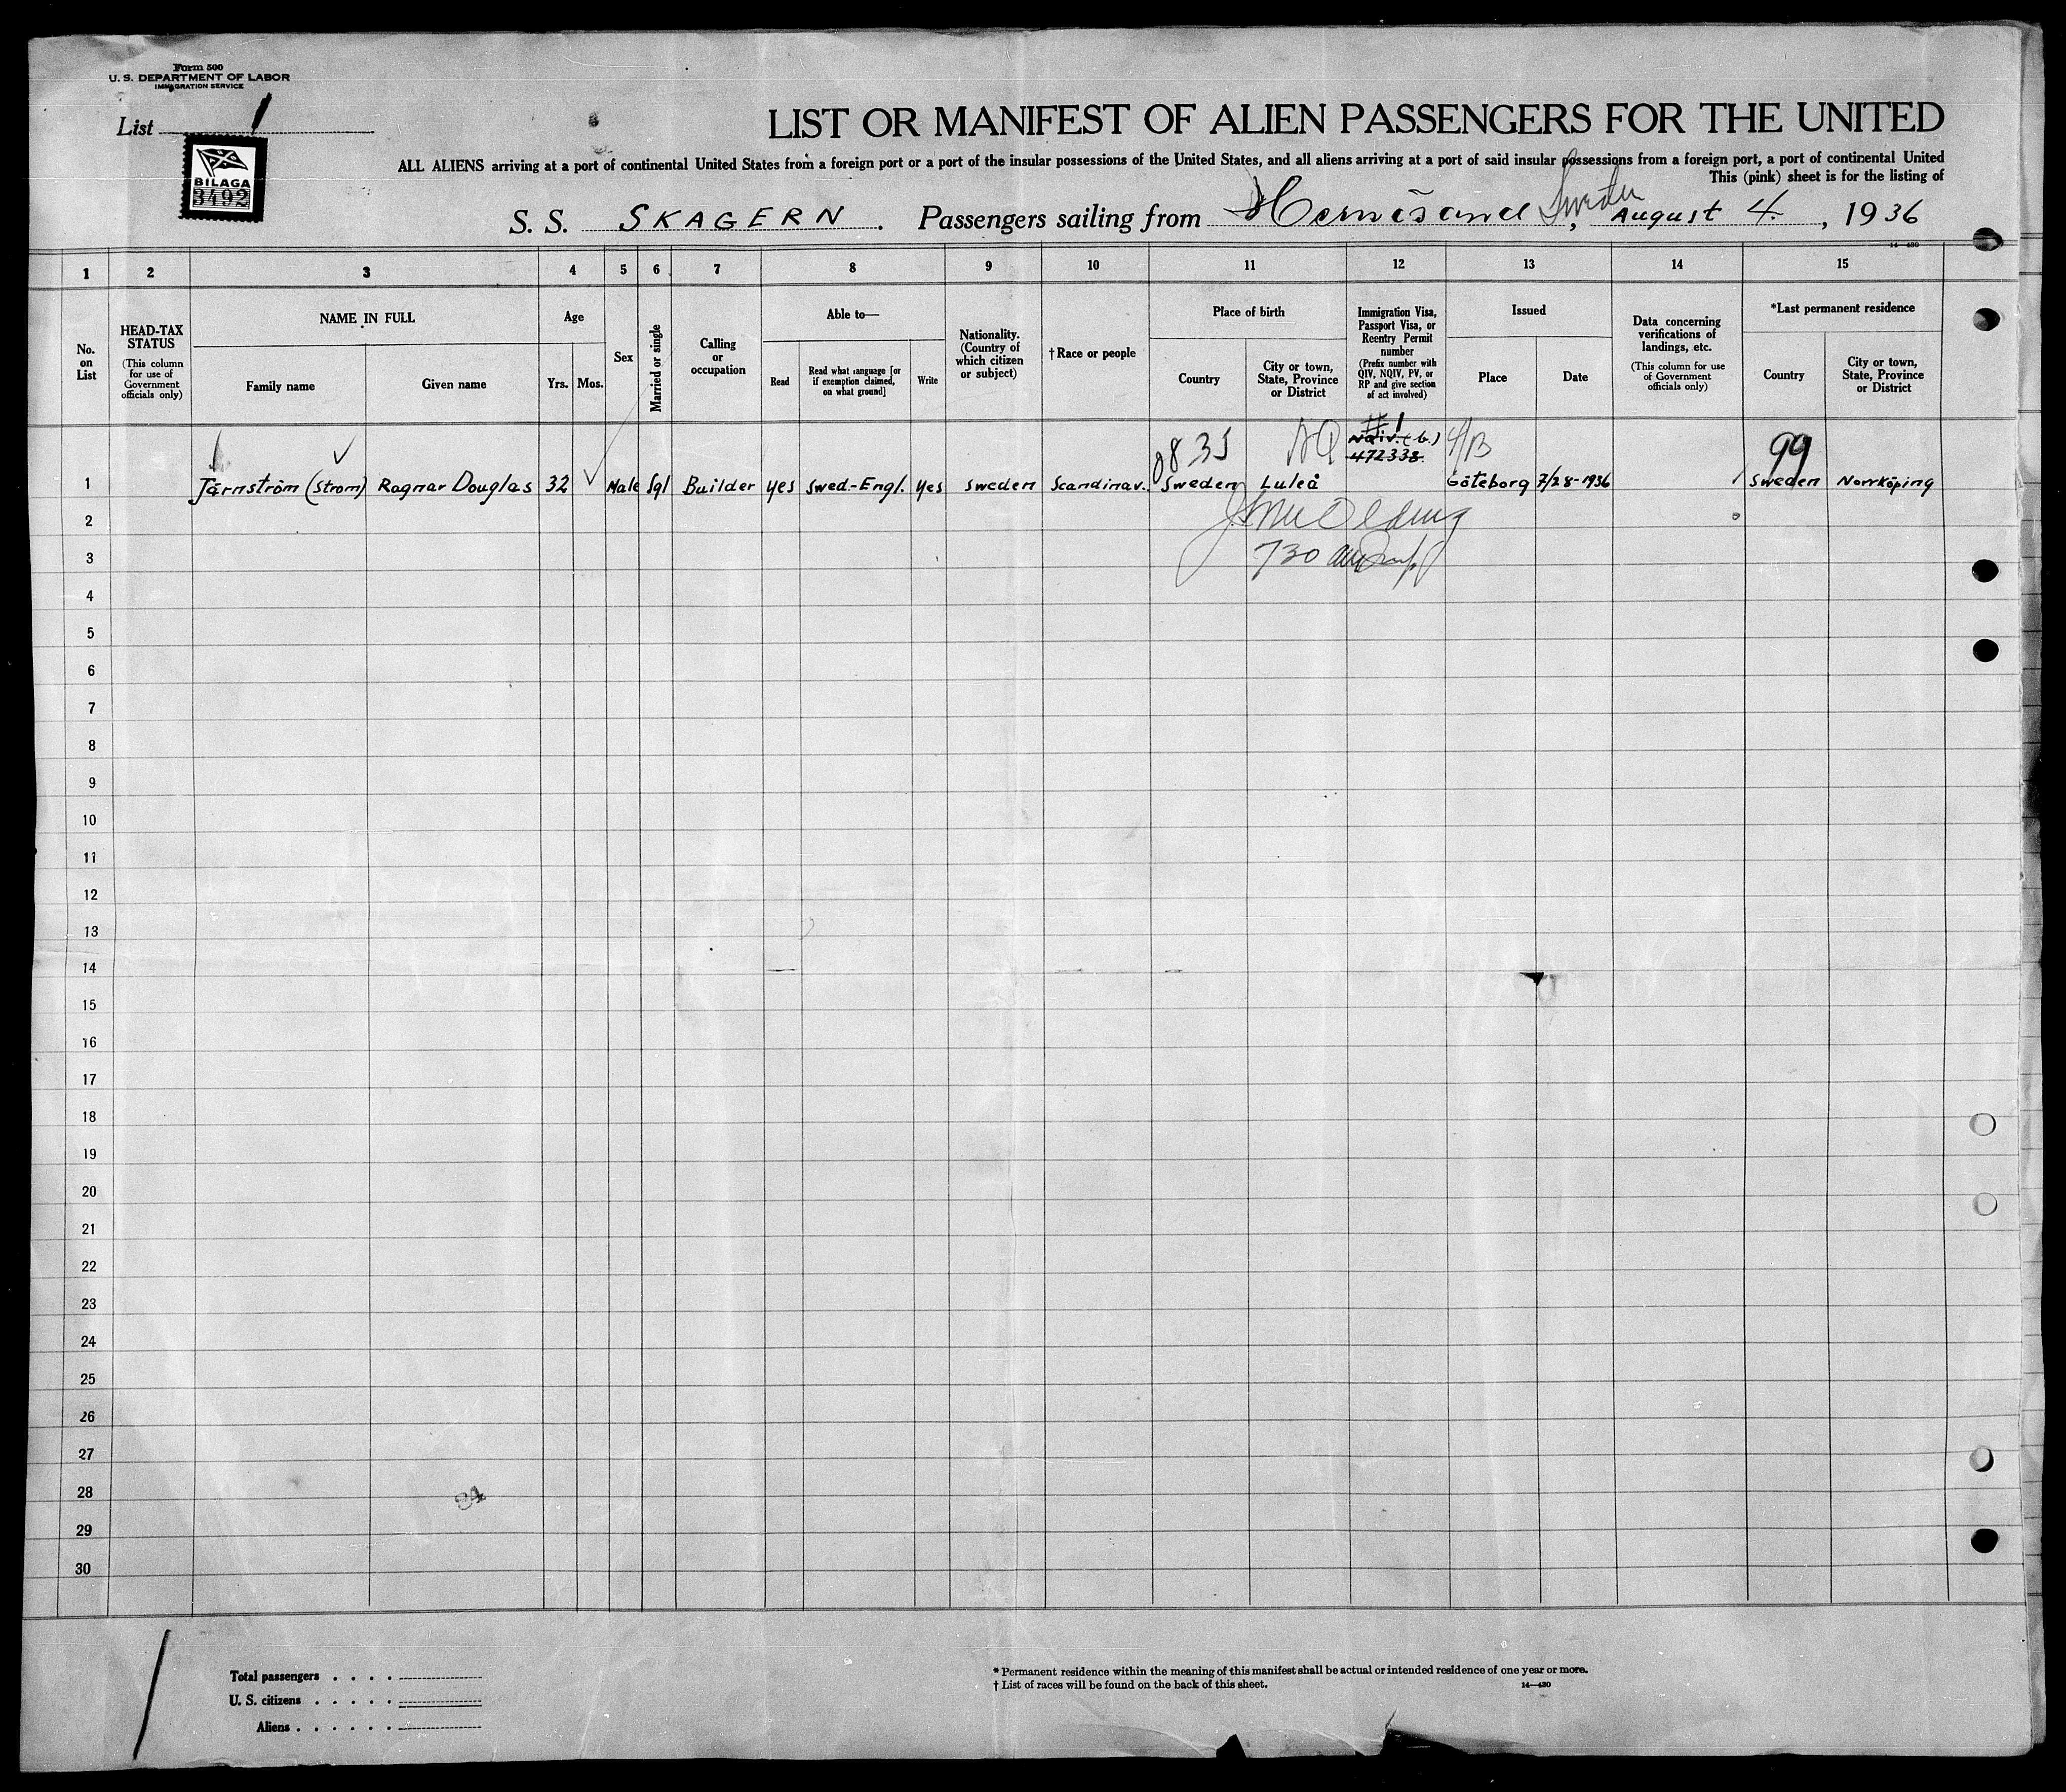 Form 500
U. S. DEPARTMENT OF LABOR
IMMIGRATION SERVICE
List 1
BILAGA
3492
LIST OR MANIFEST OF ALIEN PASSENGERS FOR THE UNITED
ALL ALIENS arriving at a port of continental United States from a foreign port or a port of the insular possessions of the United States, and all aliens arriving at a port of said insular possessions from a foreign port, a port of continental United
This (pink) sheet is for the listing of
S. S. SKAGERN. Passengers sailing from Hernösand Sweden, August 4, 1936
14—430
1 2 3 4 5 6 7 8 9 10 11 12 13 14 15
No. on List
HEAD-TAX STATUS
(This column for use of Government officials only)
NAME IN FULL
Family name
Given name
Age
Yrs.
Mos.
Sex
Married or single
Calling or occupation
Able to—
Read
Read what language [or if exemption claimed, on what ground]
Write
Nationality. (Country of which citizen or subject)
†Race or people
Place of birth
Country
City or town, State, Province or District
Immigration Visa, Passport Visa, or Reentry Permit number
(Prefix number with QIV, NQIV, PV, or RP and give section of act involved)
Issued
Place
Date
Data concerning verifications of landings, etc.
(This column for use of Government officials only)
*Last permanent residence
Country
City or town, State, Province or District
0835 NQ #1 4/13 99
Nqiv. (b.)
472338
1 Järnström (Strom) Ragnar Douglas 32 Male Sgl Builder yes Swed.-Engl. yes Sweden Scandinav. Sweden Luleå Göteborg 7/28-1936 Sweden Norrköping
2
3 730
4
5
6
7
8
9
10
11
12
13
14
15
16
17
18
19
20
21
22
23
24
25
26
27
28 84
29
30
Total passengers . . . .
U. S. citizens . . . . .
Aliens . . . . . .
* Permanent residence within the meaning of this manifest shall be actual or intended residence of one year or more.
† List of races will be found on the back of this sheet.
14—430